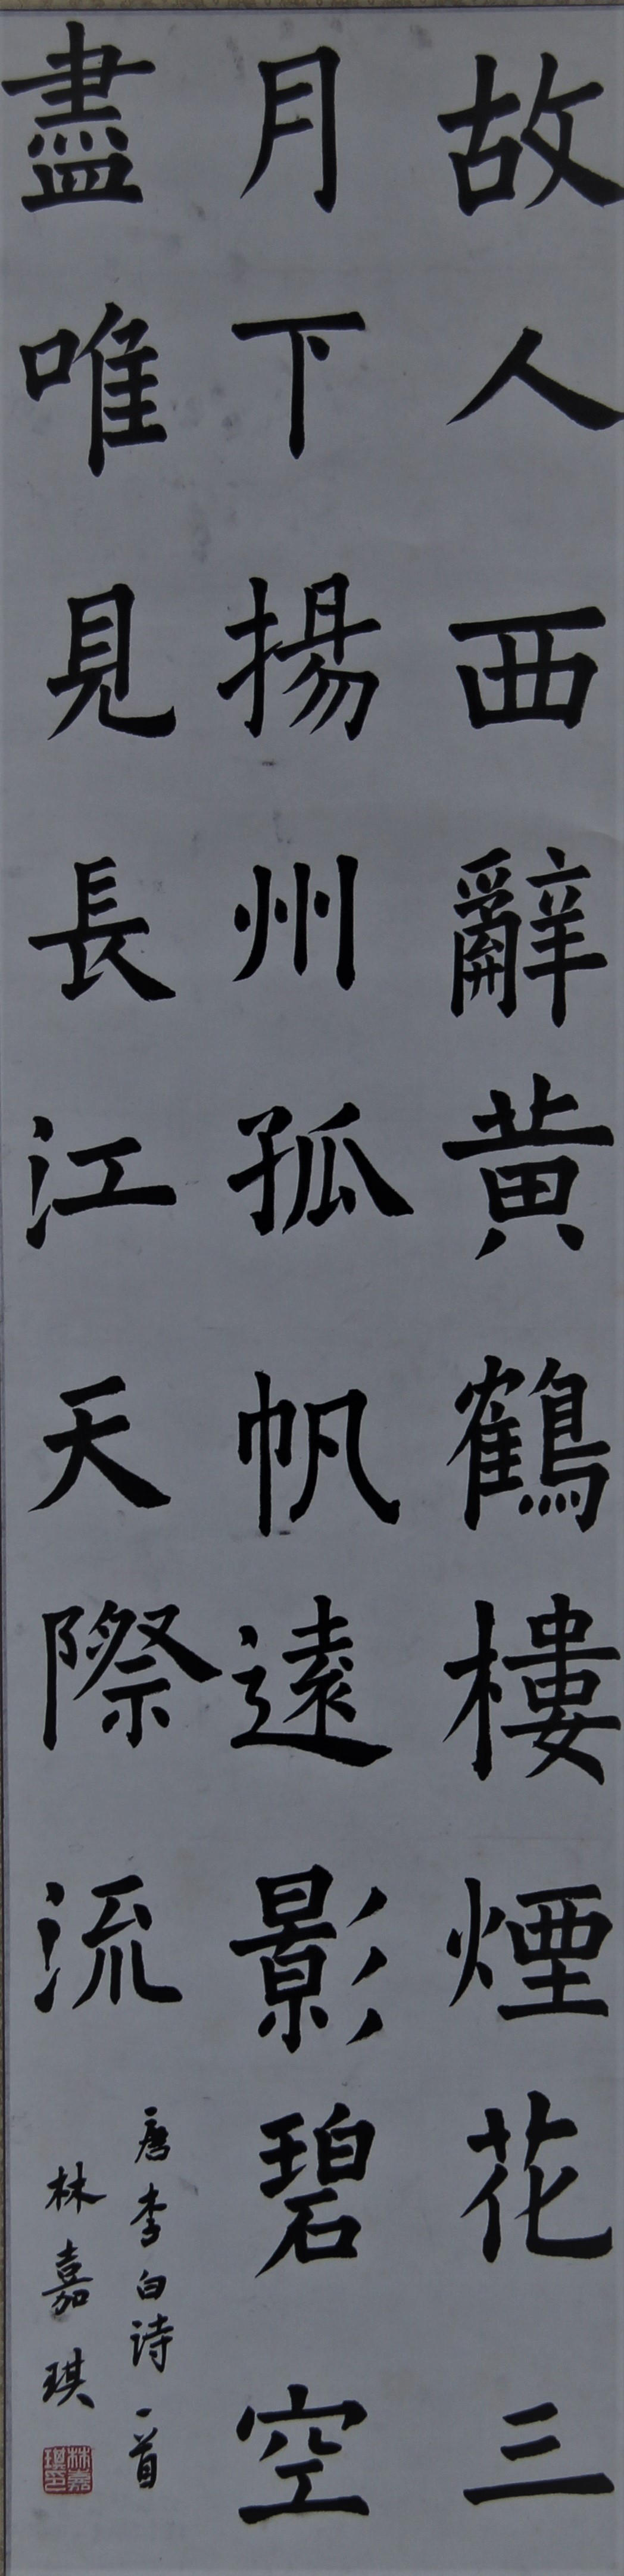 故人西辭黃鶴樓煙花三
月下揚州孤帆遠影碧空
盡唯見長江天際流
唐李白诗一首
林嘉琪
林嘉琪印